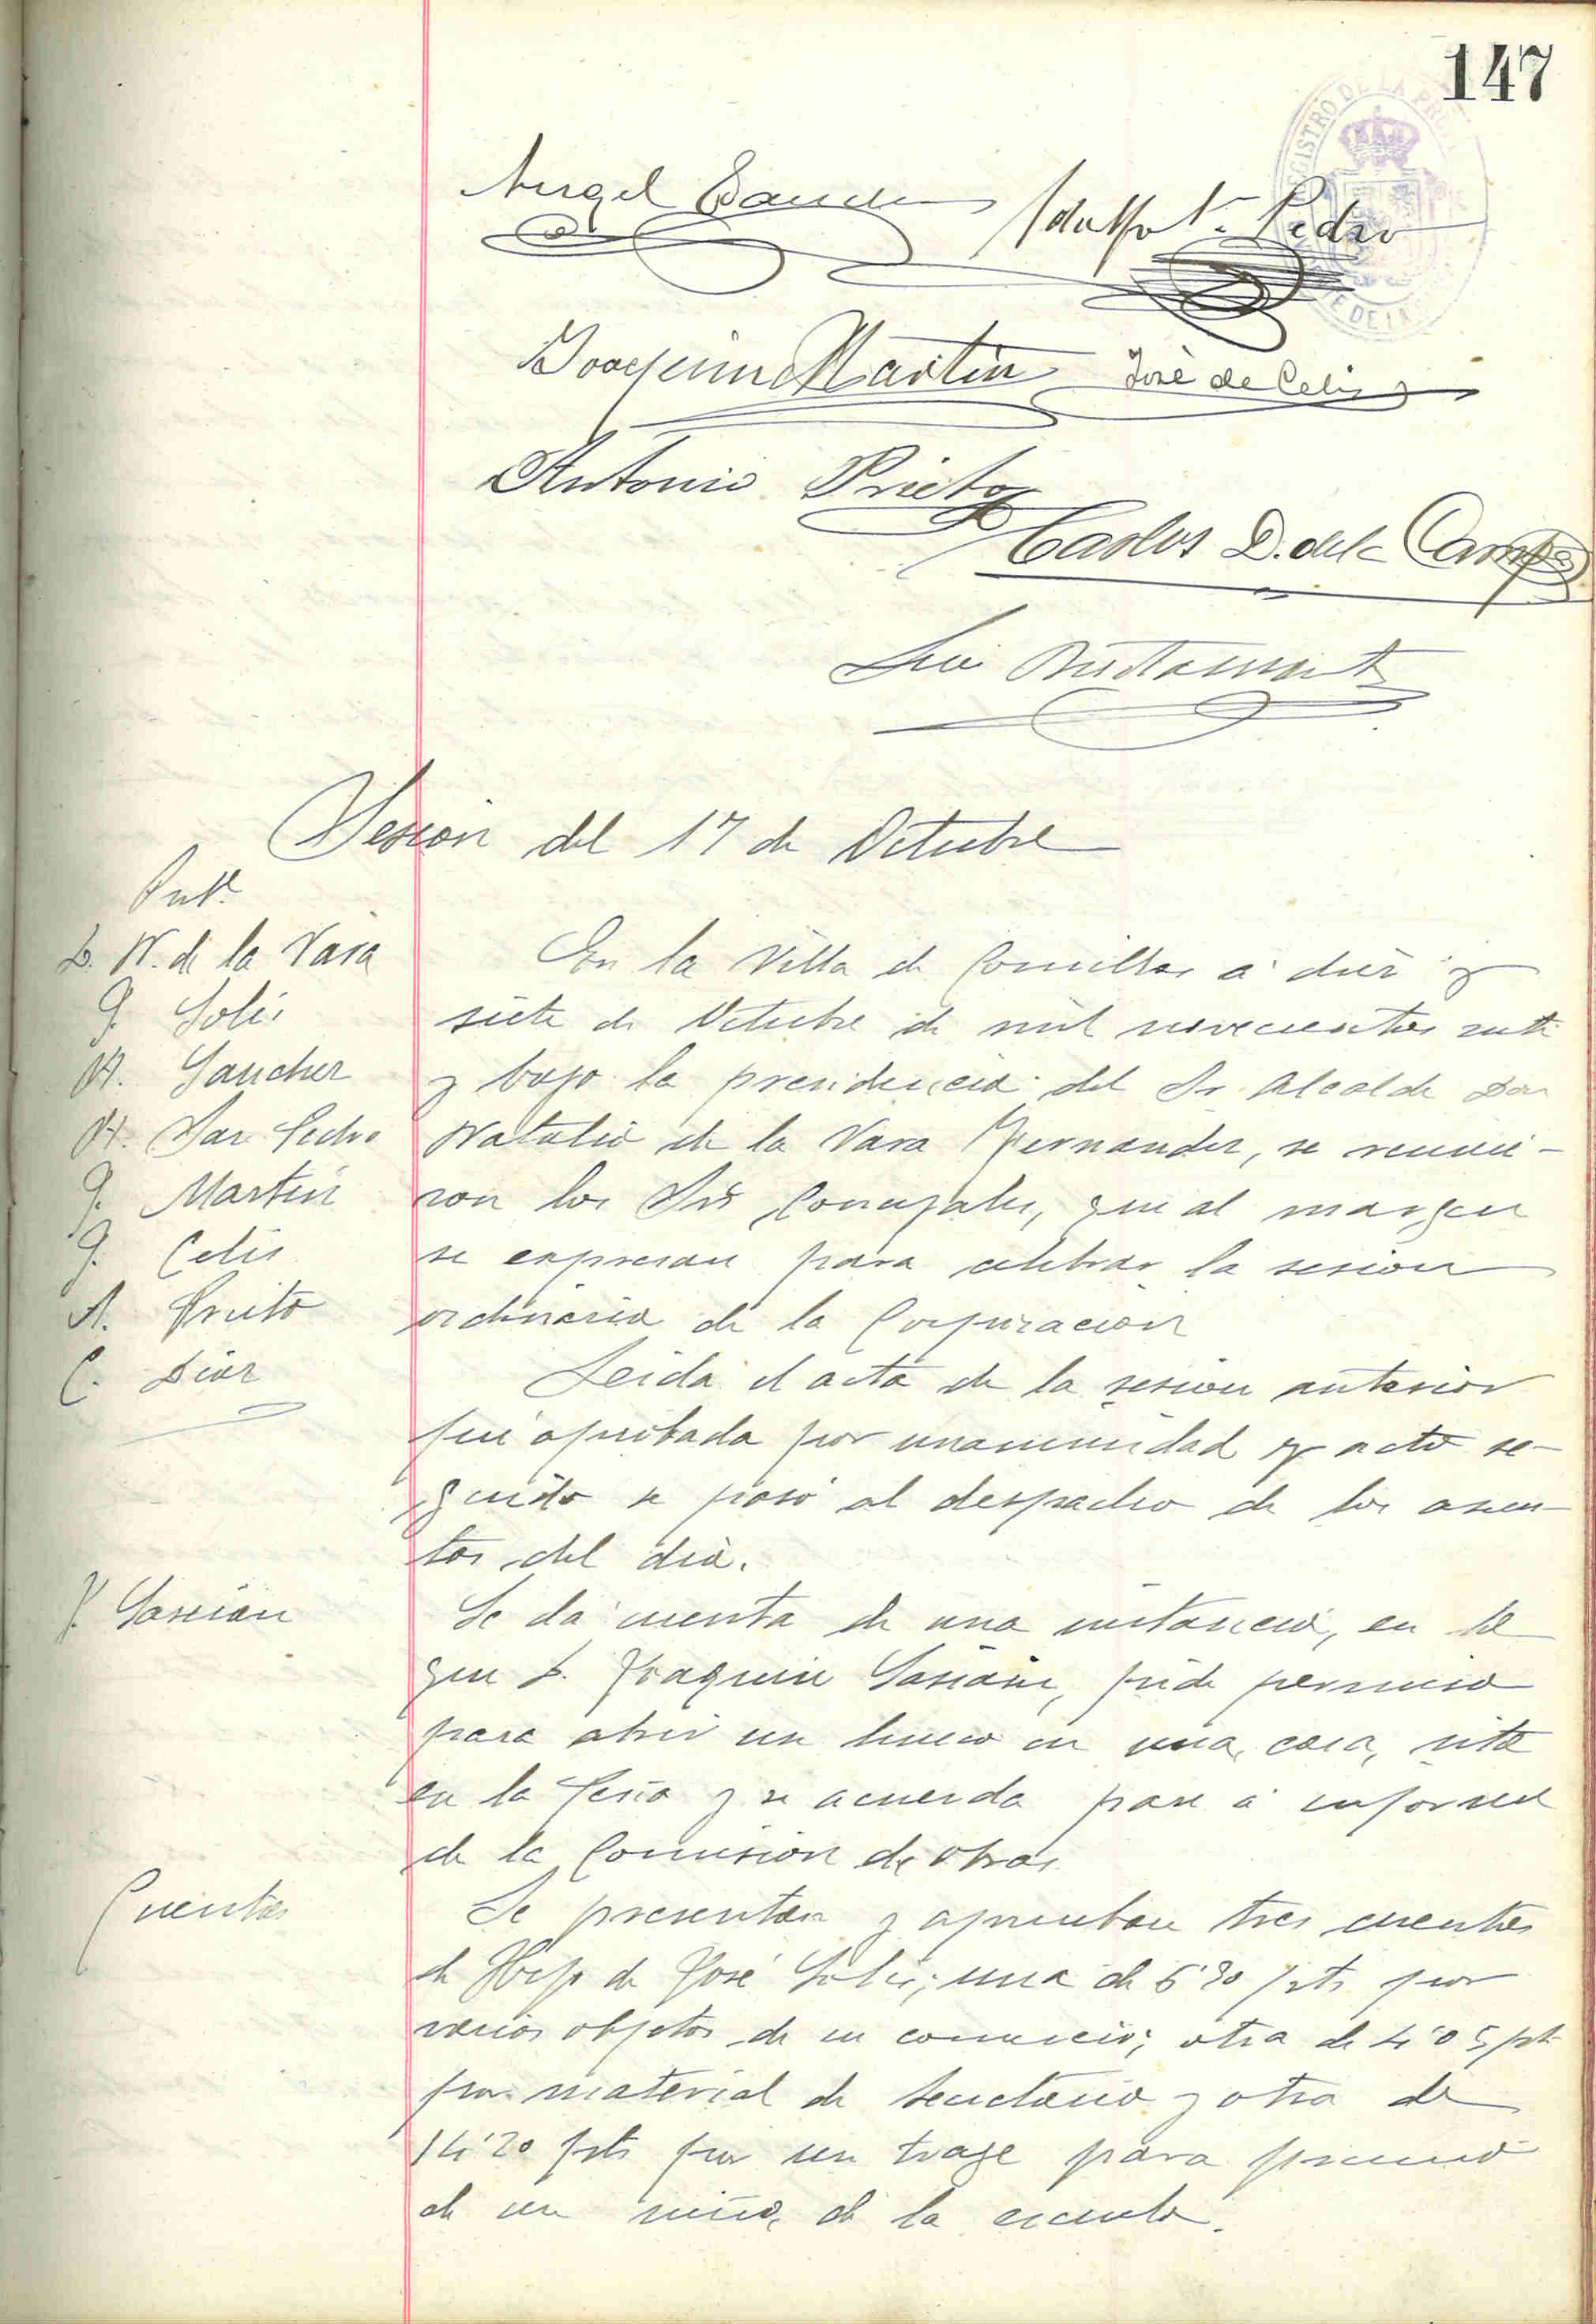 147
Angel Sanchez
Adolfo Sn. Pedro
Joaquin Martin
José de Celis
Antonio Prieto
Carlos D. de la Campa
Bustamante
Sesion del 17 de Octubre
D. N. de la Vara
J. Solis
A. Sanchez
A. San Pedro
J. Martin
J. Celis
A. Prieto
C. Diaz
En la Villa de Comillas a diez y
siete de Octubre de mil novecientos siete
y bajo la presidencia del Sr Alcalde Don
Natalio de la Vara Fernandez, se reunie-
ron los Srs Concejales, que al margen
se expresan para celebrar la sesion
ordinaria de la Corporacion
Leida el acta de la sesion anterior
fué aprobada por unanimidad y acto se-
guido se pasó al despacho de los asun-
tos del dia.
J. Sascian
Se da cuenta de una instancia, en la
que D. Joaquin, pide permiso
para abrir un hueco en una casa, sita
en la Peña y se acuerda pase á informe
de la Comision de obras
Cuentas
Se presentan y aprueban tres cuentas
de Hijo de José Solis; una de 5'90 pts por
varios objetos de su comercio; otra de 4'05 pts
por material de secretaria y otra de
14'20 pts por un traje para premio
de un niño, de la escuela.